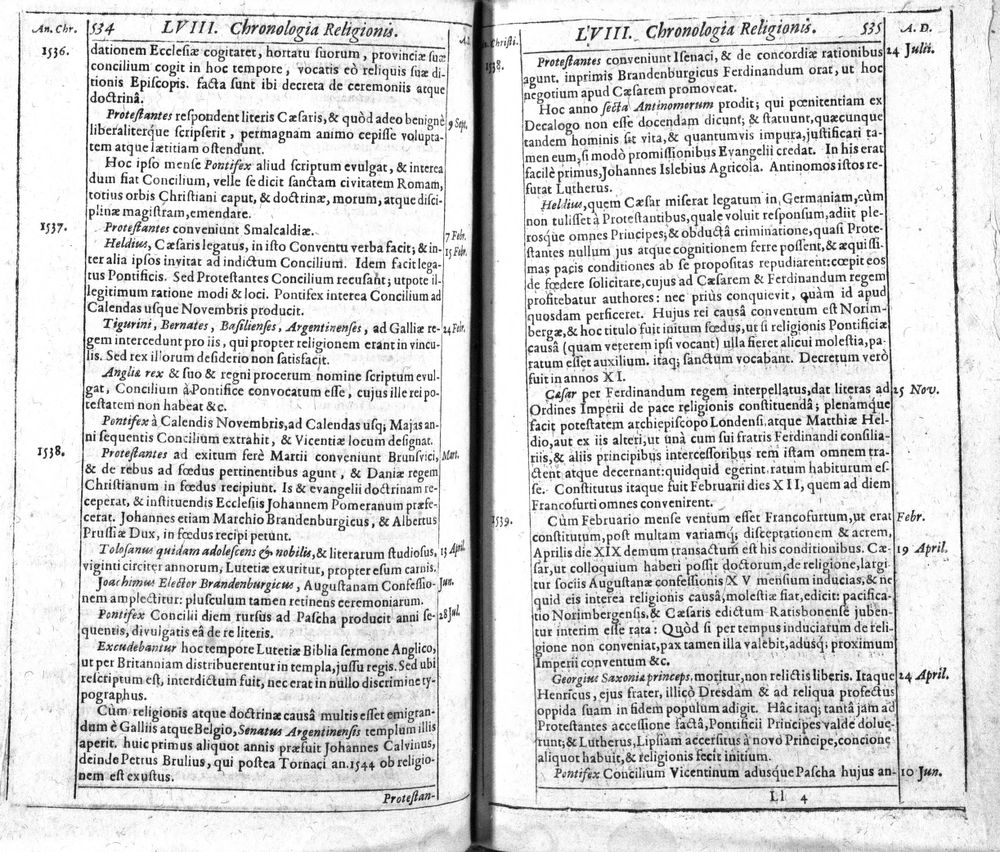 An. Chr.
534 LVIII. Chronologia Religionis.
1536.
dationem Ecclesiæ cogitaret, hortatu suorum, provinciæ suæ
concilium cogit in hoc tempore, vocatis eò reliquis suæ di-
tionis Episcopis. facta sunt ibi decreta de ceremoniis atque
doctrinâ.
Protestantes respondent literis Cæsaris, & quòd adeo benignè
9 Sept.
liberaliterque scripserit, permagnam animo cepisse volupta-
tem atque lætitiam ostendunt.
Hoc ipso mense Pontifex aliud scriptum evulgat, & interea
dum fiat Concilium, velle se dicit sanctam civitatem Romam,
totius orbis Christiani caput, & doctrinæ, morum, atque disci-
plinæ magistram, emendare.
1537.
Protestantes conveniunt Smalcaldiæ.
7 Febr.
Heldius, Cæsaris legatus, in isto Conventu verba facit; & in-
15 Febr.
ter alia ipsos invitat ad indictum Concilium. Idem facit lega-
tus Pontificis. Sed Protestantes Concilium recusant; utpote il-
legitimum ratione modi & loci. Pontifex interea Concilium ad
Calendas usque Novembris producit.
Tigurini, Bernates, Basilienses, Argentinenses, ad Galliæ re-
24 Febr.
gem intercedunt pro iis, qui propter religionem erant in vincu-
lis. Sed rex illorum desiderio non satisfacit.
Angliæ rex & suo & regni procerum nomine scriptum evul-
gat, Concilium à Pontifice convocatum esse, cujus ille rei po-
testatem non habeat &c.
Pontifex à Calendis Novembris, ad Calendas usq; Majas an-
ni sequentis Concilium extrahit, & Vicentiæ locum designat.
1538.
Protestantes ad exitum ferè Martii conveniunt Brunsvici,
Mart.
& de rebus ad fœdus pertinentibus agunt, & Daniæ regem
Christianum in fœdus recipiunt. Is & evangelii doctrinam re-
ceperat, & instituendis Ecclesiis Johannem Pomeranum præfe-
cerat. Johannes etiam Marchio Brandenburgicus, & Albertus
Prussiæ Dux, in fœdus recipi petunt.
Tolosanus quidam adolescens & nobilis, & literarum studiosus,
13 April.
viginti circiter annorum, Lutetiæ exuritur, propter esum carnis.
Joachimus Elector Brandenburgicus, Augustanam Confessio-
Jun.
nem amplectitur: plusculum tamen retinens ceremoniarum.
Pontifex Concilii diem rursus ad Pascha producit anni se-
28 Jul.
quentis, divulgatis eâ de re literis.
Excudebantur hoc tempore Lutetiæ Biblia sermone Anglico,
ut per Britanniam distribuerentur in templa, jussu regis. Sed ubi
rescriptum est, interdictum fuit, nec erat in nullo discrimine ty-
pographus.
Cùm religionis atque doctrinæ causâ multis esset emigran-
dum è Galliis atque Belgio, Senatus Argentinensis templum illis
aperit. huic primus aliquot annis præfuit Johannes Calvinus,
deinde Petrus Brulius, qui postea Tornaci an. 1544 ob religio-
nem est exustus.
Protestan-
LVIII. Chronologia Religionis. 535
A. D.
Christi.
1538.
Protestantes conveniunt Isenaci, & de concordiæ rationibus
24 Julii.
agunt. inprimis Brandenburgicus Ferdinandum orat, ut hoc
negotium apud Cæsarem promoveat.
Hoc anno secta Antinomorum prodit; qui pœnitentiam ex
Decalogo non esse docendam dicunt; & statuunt, quæcunque
tandem hominis sit vita, & quantumvis impura, justificari ta-
men eum, si modò promissionibus Evangelii credat. In his erat
facilè primus, Johannes Islebius Agricola. Antinomos istos re-
futat Lutherus.
Heldius, quem Cæsar miserat legatum in Germaniam, cùm
non tulisset à Protestantibus, quale voluit responsum, adiit ple-
rosque omnes Principes; & obductâ criminatione, quasi Prote-
stantes nullum jus atque cognitionem ferre possent, & æquissi-
mas pacis conditiones ab se propositas repudiarent: cœpit eos
de fœdere solicitare, cujus ad Cæsarem & Ferdinandum regem
profitebatur authores: nec priùs conquievit, quàm id apud
quosdam perficeret. Hujus rei causâ conventum est Norim-
bergæ, & hoc titulo fuit initum fœdus, ut si religionis Pontificiæ
causâ (quam veterem ipsi vocant) ulla fieret alicui molestia, pa-
ratum esset auxilium. itaq; sanctum vocabant. Decretum verò
fuit in annos XI.
Cæsar per Ferdinandum regem interpellatus, dat literas ad
25 Nov.
Ordines Imperii de pace religionis constituendâ; plenamque
facit potestatem archiepiscopo Londensi, atque Matthiæ Hel-
dio, aut ex iis alteri, ut unà cum sui fratris Ferdinandi consilia-
riis, & aliis principibus intercessoribus rem istam omnem tra-
ctent atque decernant: quidquid egerint, ratum habiturum es-
se. Constitutus itaque fuit Februarii dies XII, quem ad diem
Francofurti omnes convenirent.
1539.
Cùm Februario mense ventum esset Francofurtum, ut erat
Febr.
constitutum, post multam variamq; disceptationem & acrem,
Aprilis die XIX demum transactum est his conditionibus. Cæ-
19 April.
sar, ut colloquium haberi possit doctorum, de religione, largi-
tur sociis Augustanæ confessionis XV mensium inducias, & ne
quid eis interea religionis causâ, molestiæ fiat, edicit: pacifica-
tio Norimbergensis, & Cæsaris edictum Ratisbonense juben-
tur interim esse rata: Quòd si per tempus induciarum de reli-
gione non conveniat, pax tamen illa valebit, adusq; proximum
Imperii conventum &c.
Georgius Saxoniæ princeps, moritur, non relictis liberis. Itaque
24 April.
Henricus, ejus frater, illicò Dresdam & ad reliqua profectus
oppida suam in fidem populum adigit. Hâc itaq; tantâ jam ad
Protestantes accessione factâ, Pontificii Principes valde dolue-
runt; & Lutherus, Lipsiam accersitus à novo Principe, concione
aliquot habuit, & religionis fecit initium.
Pontifex Concilium Vicentinum adusque Pascha hujus an-
10 Jun.
Ll 4